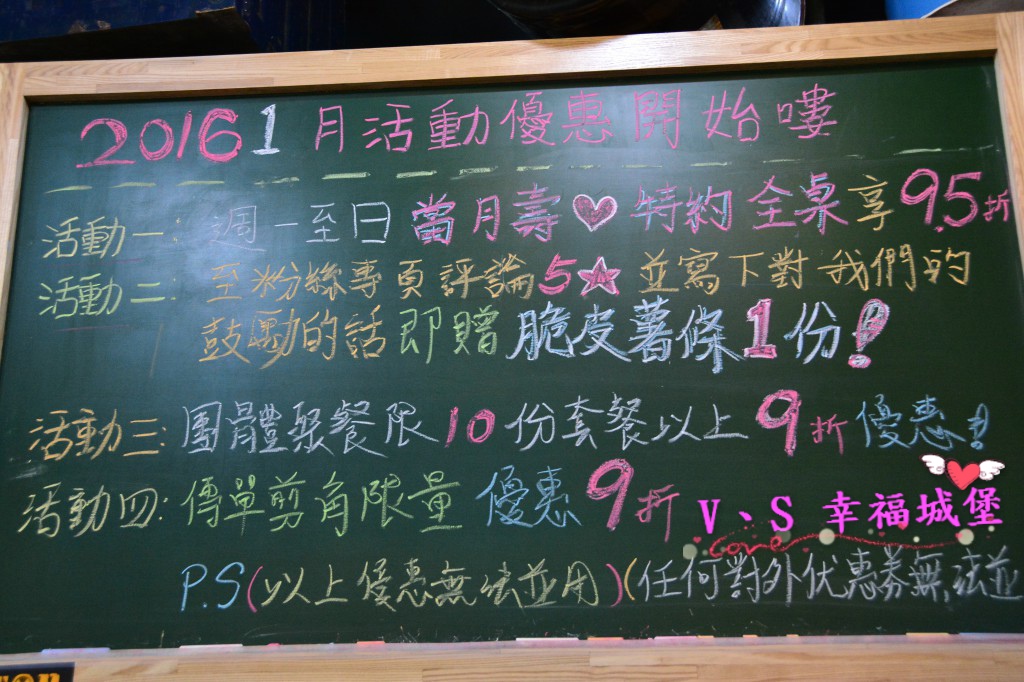 2016 1月活動優惠開始嘍
活動一: 週一至日 當月壽♥ 特約 全桌享 9.5折
活動二: 至粉絲專頁評論5★ 並寫下對我們的
鼓勵的話 即贈 脆皮薯條1份!
活動三: 團體聚餐限10份套餐以上9折優惠!
活動四: 傳單剪角限量 優惠9折
V、S 幸福城堡
Love
P.S(以上優惠無法並用)(任何對外优惠券無法並